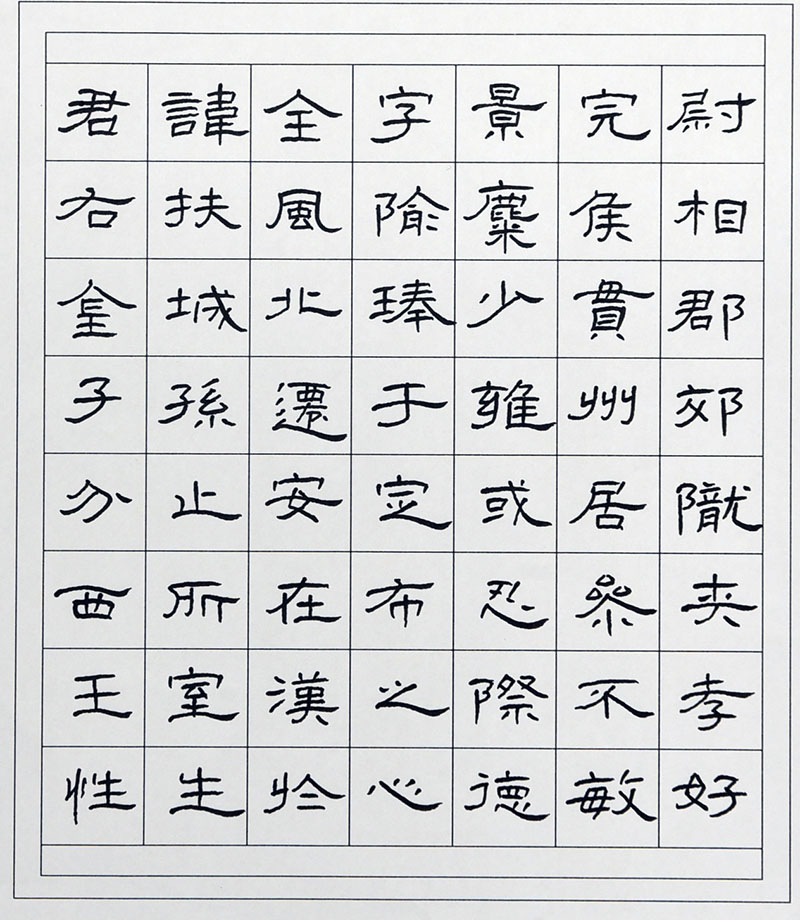 君諱全字景完尉
右扶風隃麋侯相
金城北琫少貫郡
子孫遷于雍州郊
分止安定或居隴
西所在布忍參夾
王室漢之際不孝
性生於心德敏好